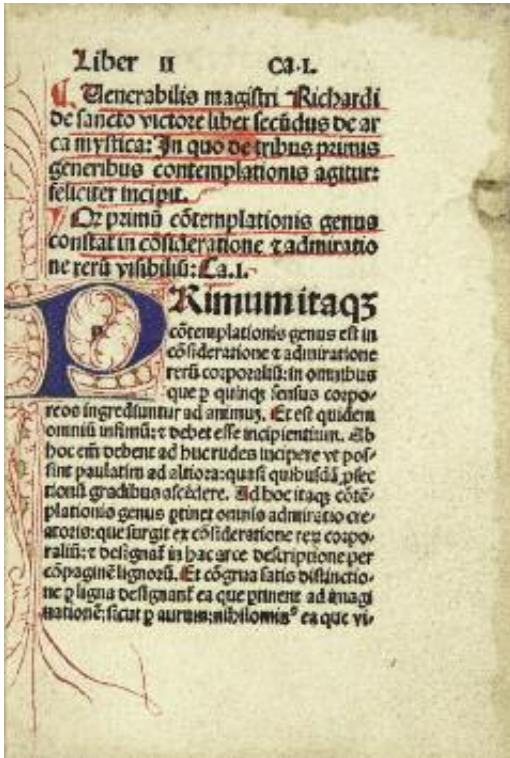 Liber II Ca.I.
¶ Uenerabilis magistri Richardi
de sancto victore liber secūdus de ar
ca mystica: In quo de tribus primis
generibus contemplationis agitur:
feliciter incipit.
Qꝫ primū cōtemplationis genus
constat in cōsideratione ⁊ admiratio
ne rerū visibiliū: Ca.I.
PRimum itaqꝫ
cōtemplationis genus est in
cōsideratione ⁊ admiratione
rerū corporaliū: in omnibus
que ꝑ quinqꝫ sensus corpo⸗
reos ingrediuntur ad animuꝫ. Et est quidem
omniū infimū: ⁊ debet esse incipientium. Ab
hoc em̄ debent ad huc rudes incipere vt pos⸗
sint paulatim ad altiora: quasi quibusdā ꝓfec
tionū gradibus ascēdere. Ad hoc itaqꝫ cōtē⸗
plationis genus ꝑtinet omnis admiratio cre⸗
atoris: que surgit ex cōsideratione reꝝ corpo⸗
raliū: ⁊ designat̄ in hac arce descriptione per
cōpaginē lignorū. Et cōgrua satis distinctio⸗
ne ꝑ ligna designant̄ ea que ꝑtinent ad imagi
nationē: sicut ꝑ aurum: nihilominꝰ ea que vi⸗